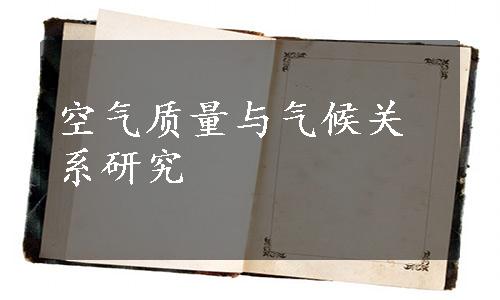 空气质量与气候关
系研究